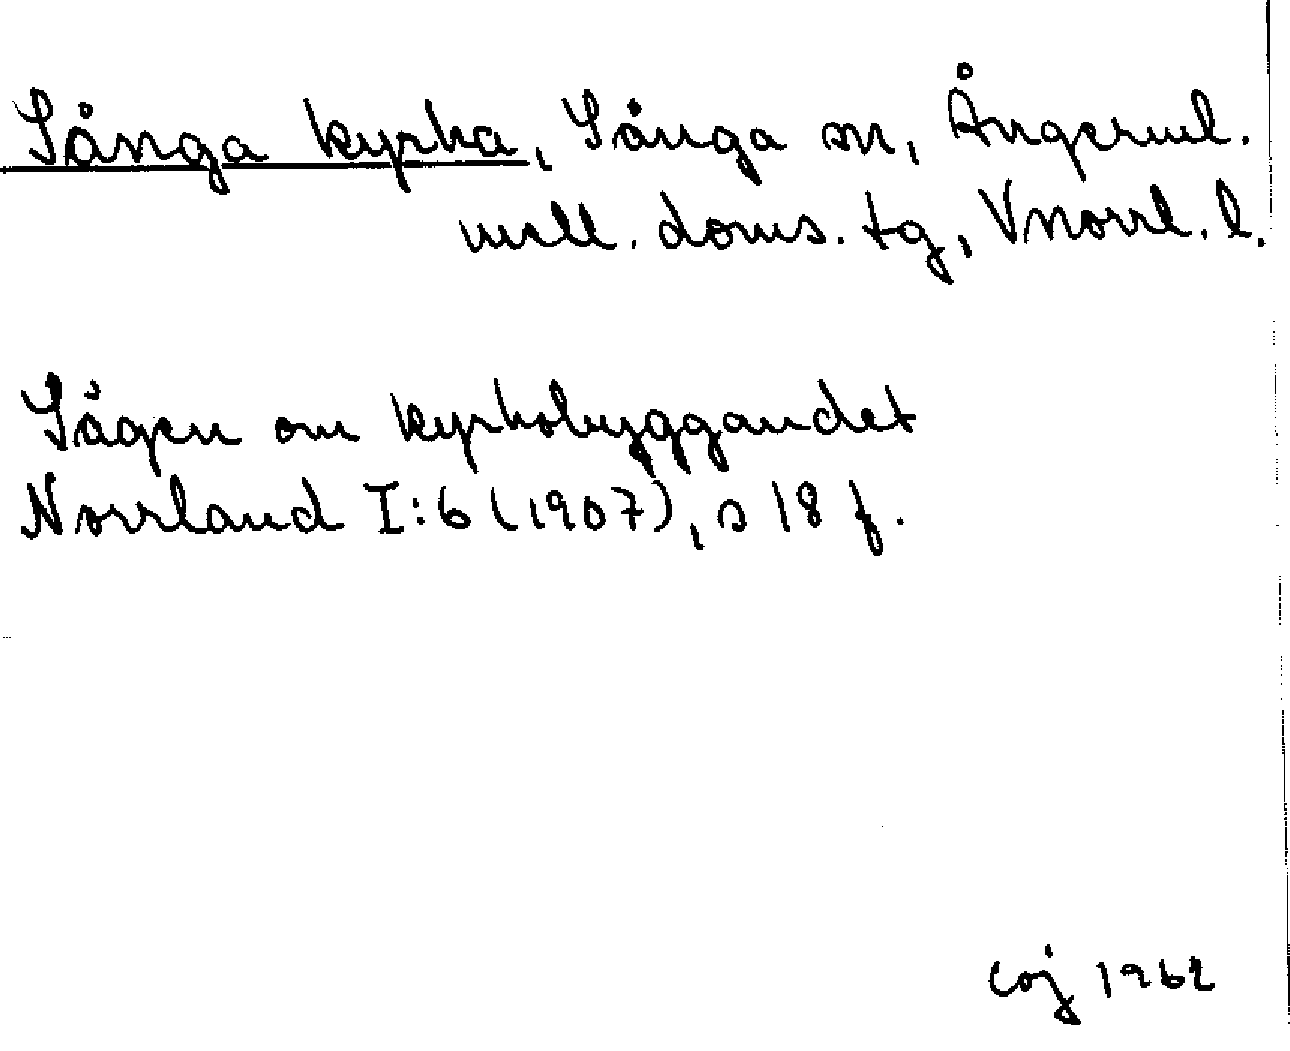 Sånga kyrka, Sånga sn, Ångerml.
mell. doms. tg, Vnorrl. l.
Sägen om kyrkobyggandet
Norrland I:6 (1907), s 18 f.
coj 1962